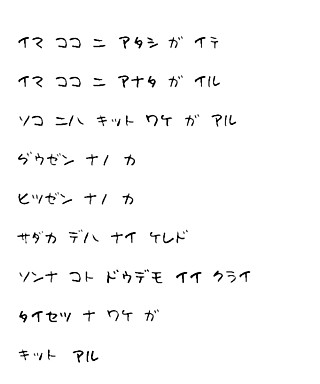 イマ ココ ニ アタシ ガ イテ
イマ ココ ニ アナタ ガ イル
ソコ ニハ キット ワケ ガ アル
グウゼン ナノ カ
ヒツゼン ナノ カ
サダカ デハ ナイ ケレド
ソンナ コト ドウデモ イイ クライ
タイセツ ナ ワケ ガ
キット アル